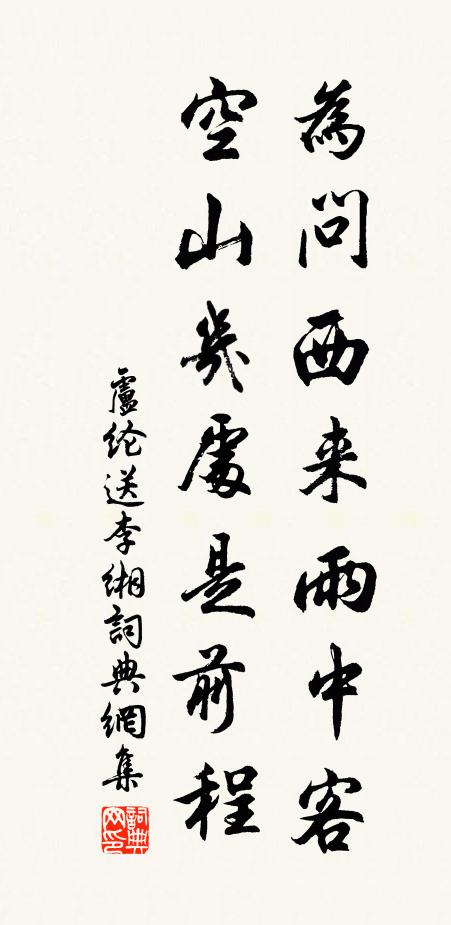 為問西来雨中客
空山幾處是前程
盧纶送李緗詞典網集
詞典網印